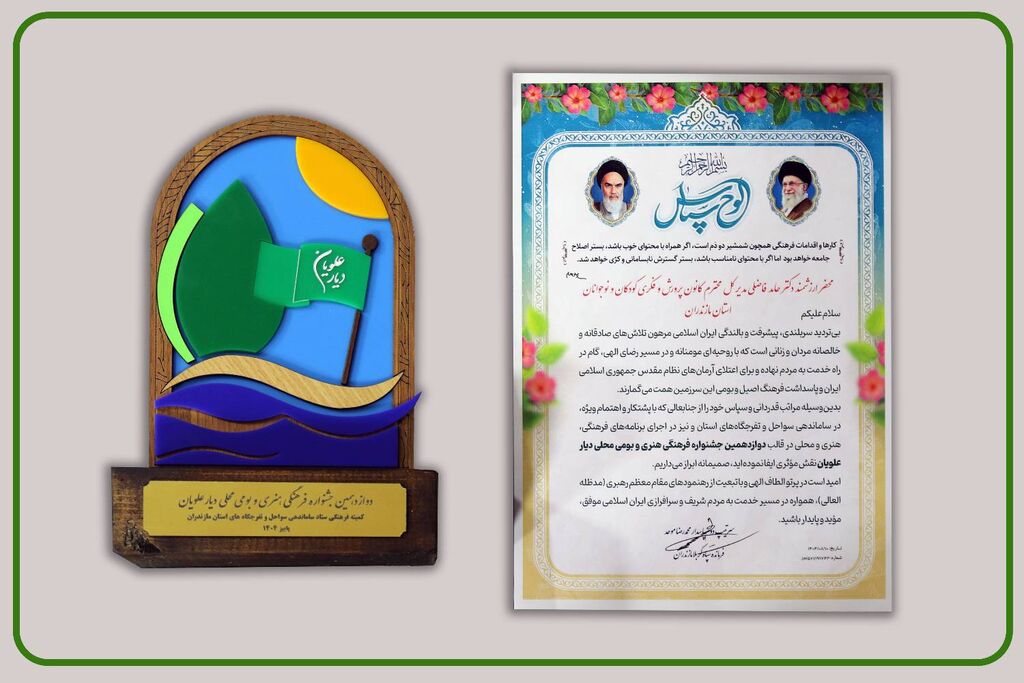 علویان
دیار
دوازدهمین جشنواره فرهنگی هنری و بومی محلی دیار علویان
کمیته فرهنگی ستاد ساماندهی سواحل و تفرجگاه های استان مازندران
پاییز ۱۴۰۴
بسم الله الرحمن الرحیم
لوح سپاس
کارها و اقدامات فرهنگی همچون شمشیر دو دَم است، اگر همراه با محتوای خوب باشد، بستر اصلاح
جامعه خواهد بود اما اگر با محتوای نامناسب باشد، بستر گسترش نابسامانی و کژی خواهد شد.
محضر ارزشمند دکتر حامد فاضلی مدیر کل محترم کانون پرورش و فکری کودکان و نوجوانان
استان مازندران
سلام علیکم
بی‌تردید سربلندی، پیشرفت و بالندگی ایران اسلامی مرهون تلاش‌های صادقانه و
خالصانه مردان و زنانی است که با روحیه‌ای مومنانه و در مسیر رضای الهی، گام در
راه خدمت به مردم نهاده و برای اعتلای آرمان‌های نظام مقدس جمهوری اسلامی
ایران و پاسداشت فرهنگ اصیل و بومی این سرزمین همت می‌گمارند.
بدین‌وسیله مراتب قدردانی و سپاس خود را از جنابعالی که با پشتکار و اهتمام ویژه،
در ساماندهی سواحل و تفرجگاه‌های استان و نیز در اجرای برنامه‌های فرهنگی،
هنری و محلی در قالب دوازدهمین جشنواره فرهنگی هنری و بومی محلی دیار
علویان نقش مؤثری ایفا نموده‌اید، صمیمانه ابراز می‌داریم.
امید است در پرتو الطاف الهی و با تبعیت از رهنمودهای مقام معظم رهبری (مدظله
العالی)، همواره در مسیر خدمت به مردم شریف و سرافرازی ایران اسلامی موفق،
مؤید و پایدار باشید.
سرتیپ دوم پاسدار محمدرضا موحد
فرمانده سپاه کربلا مازندران
تاریخ:
شماره: